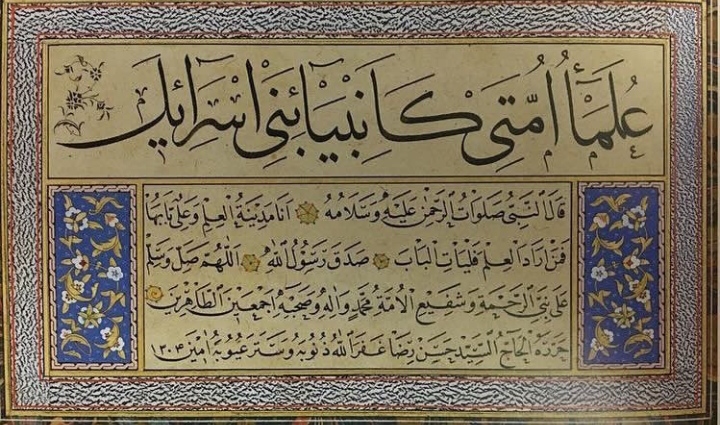 عُلَمَٓاءُ اُمَّتِى كَاَنْبِيَٓاءِ بَنِى اِسْرَٓائِلَ
قَالَ النَّبِىُّ صَلَوَاتُ الرَّحْمٰنِ عَلَيْهِ وَسَلَامُهُ اَنَا مَدِينَةُ الْعِلْمِ وَعَلِىٌّ بَابُهَا
فَمَنْ اَرَادَ الْعِلْمَ فَلْيَاْتِ الْبَابَ صَدَقَ رَسُولُ اللّٰهِ اَللّٰهُمَّ صَلِّ وَسَلِّمْ
عَلٰى نَبِىِّ الرَّحْمَةِ وَشَفِيعِ الْاُمَّةِ مُحَمَّدٍ وَاٰلِهِ وَصَحْبِهِ اَجْمَعِينَ الطَّاهِرِينَ
الْحَاجُّ السَّيِّدُ حَسَنْ رِضَا غَفَرَ اللّٰهُ ذُنُوبَهُ وَسَتَرَ عُيُوبَهُ اٰمِينَ ١٣٠٤